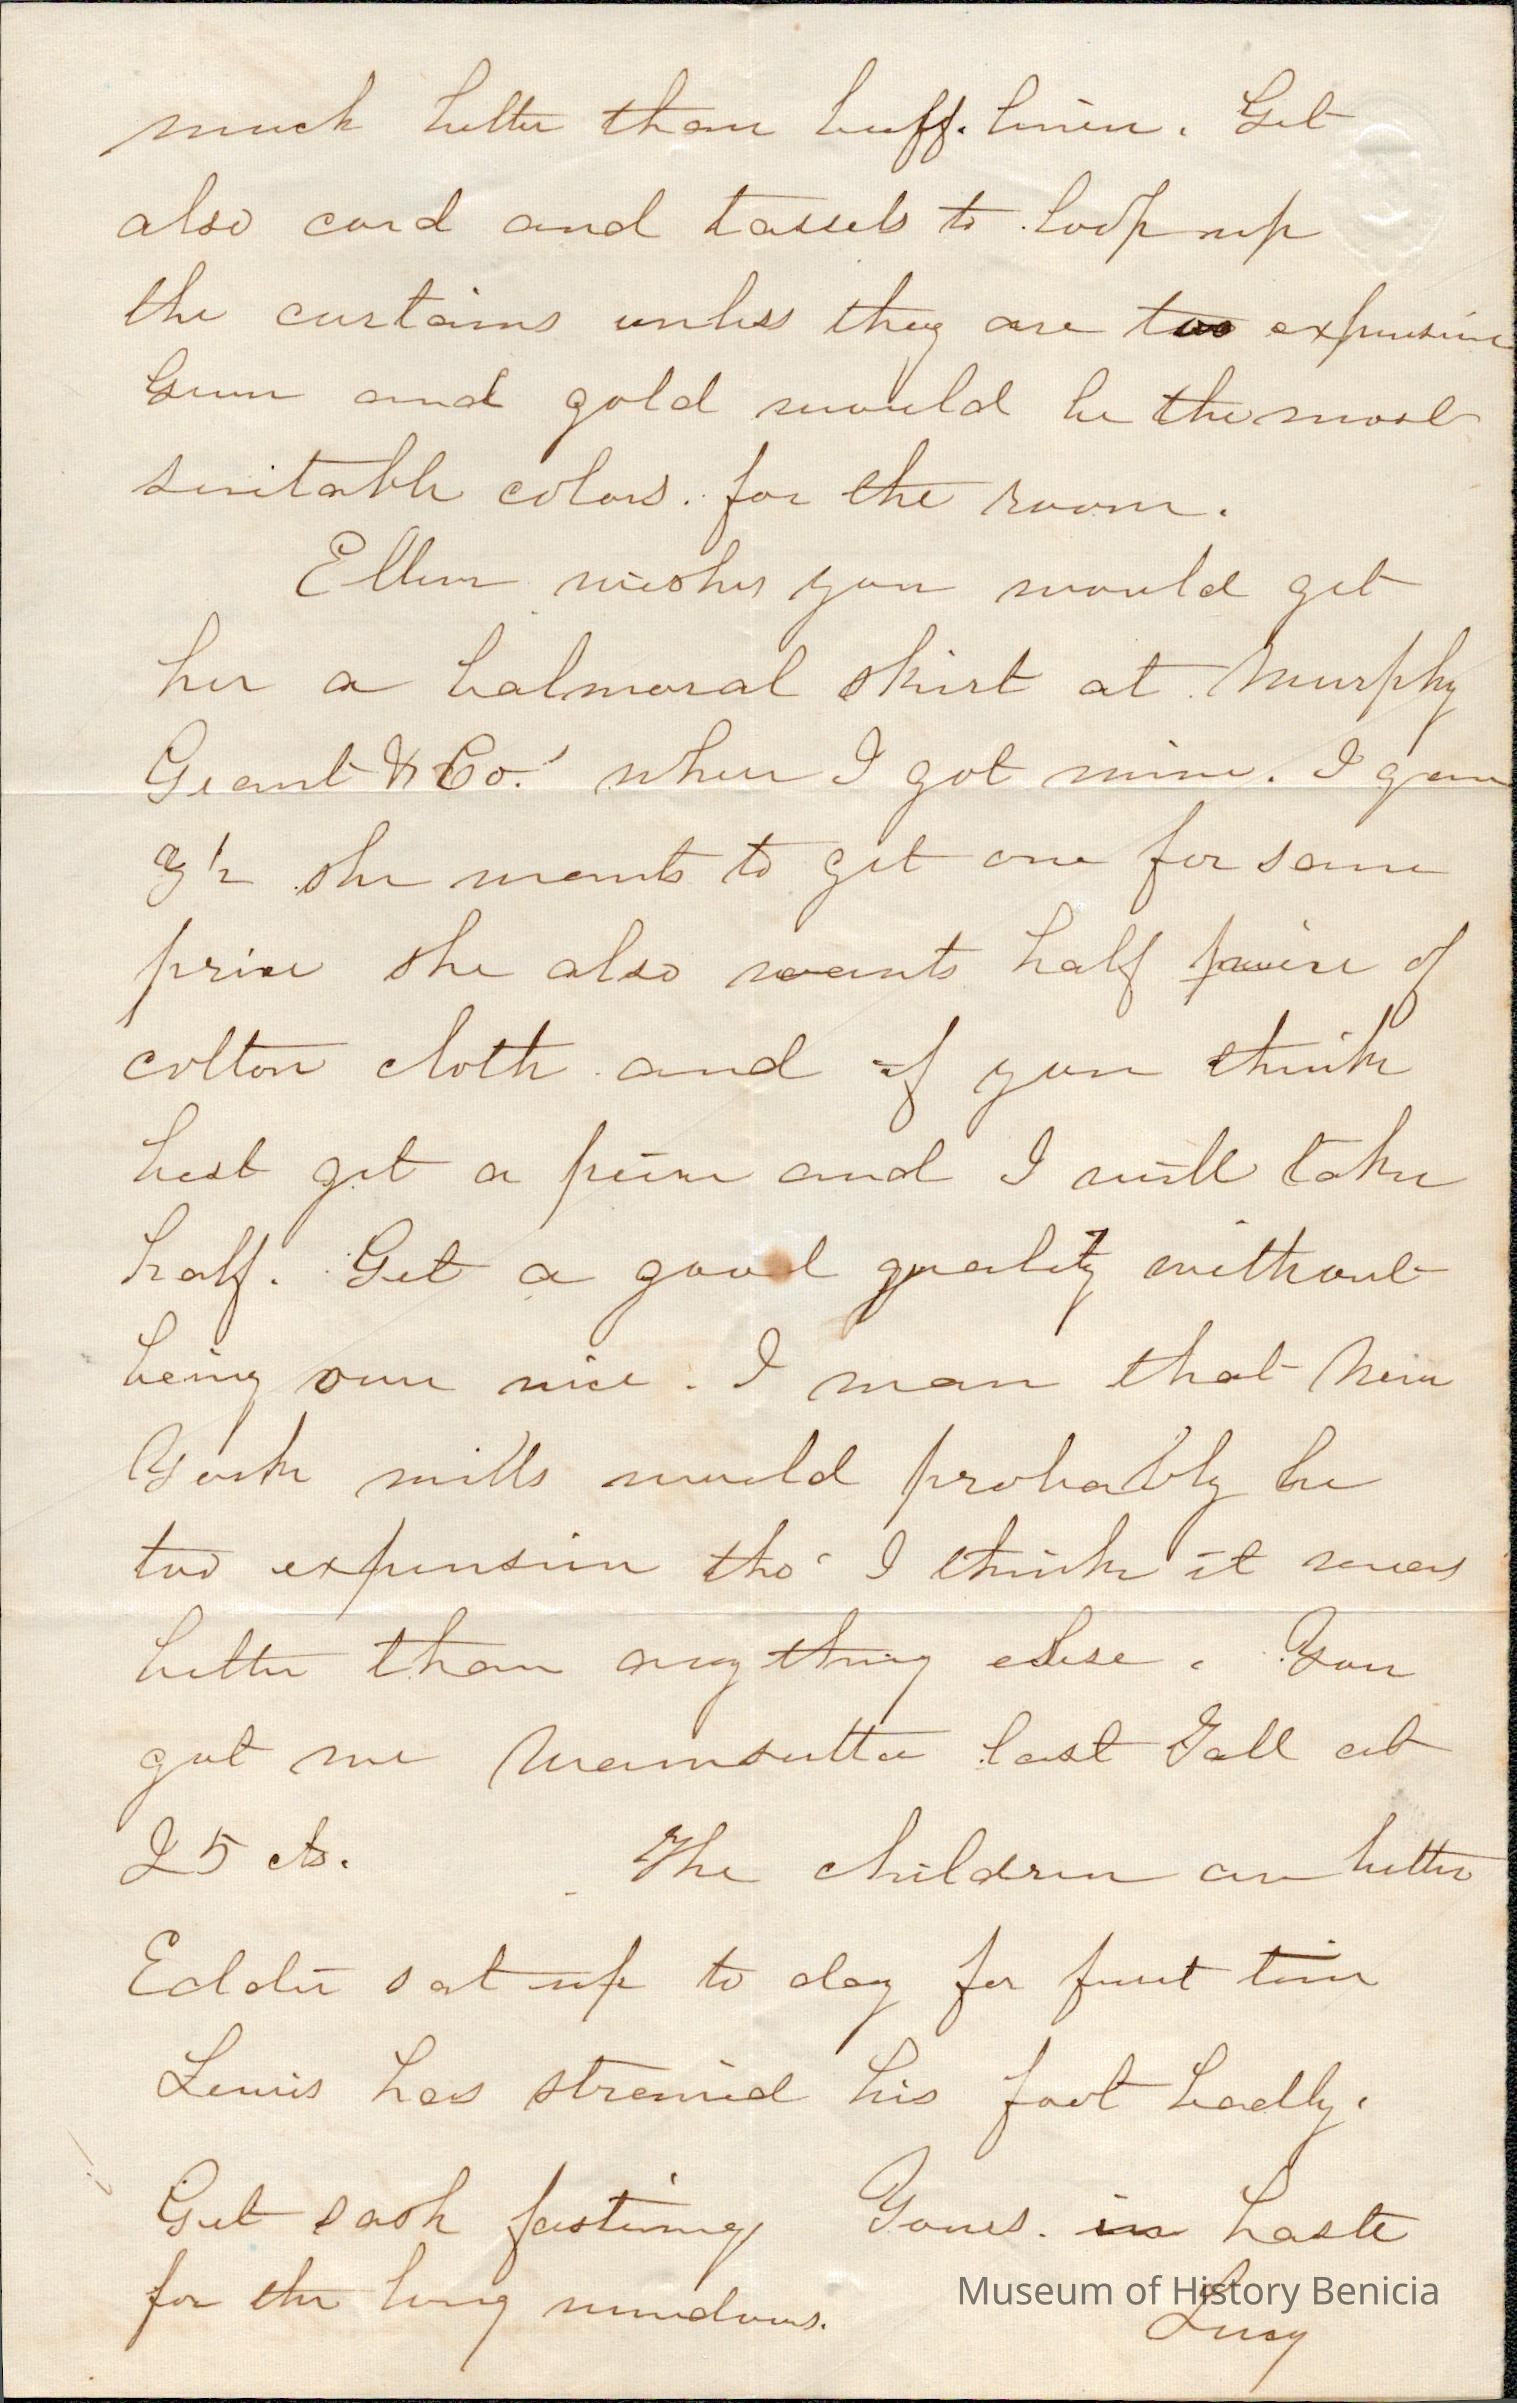 much better than buff. linen. Get
also cord and tassels to loop up
the curtains unless they are too expensive
Green and gold would be the most
suitable colors. for the room.
Ellen wishes you would get
her a balmoral skirt at Murphy
Grant & Co.' where I got mine. I gave
she wants to get one for same
price she also wants half piece of
cotton cloth and if you think
best get a piece and I will take
half. Get a good quality without
being over nice. I mean that New
York mills would probably be
too expensive tho' I think it wears
better than any thing else. You
got me Wamsutta last Fall at
25 cts. The children are better
Eddie sat up to day for first time
Lewis has strained his foot badly.
Get sash fastenings Yours. in haste
for the long windows. Lucy
Museum of History Benicia